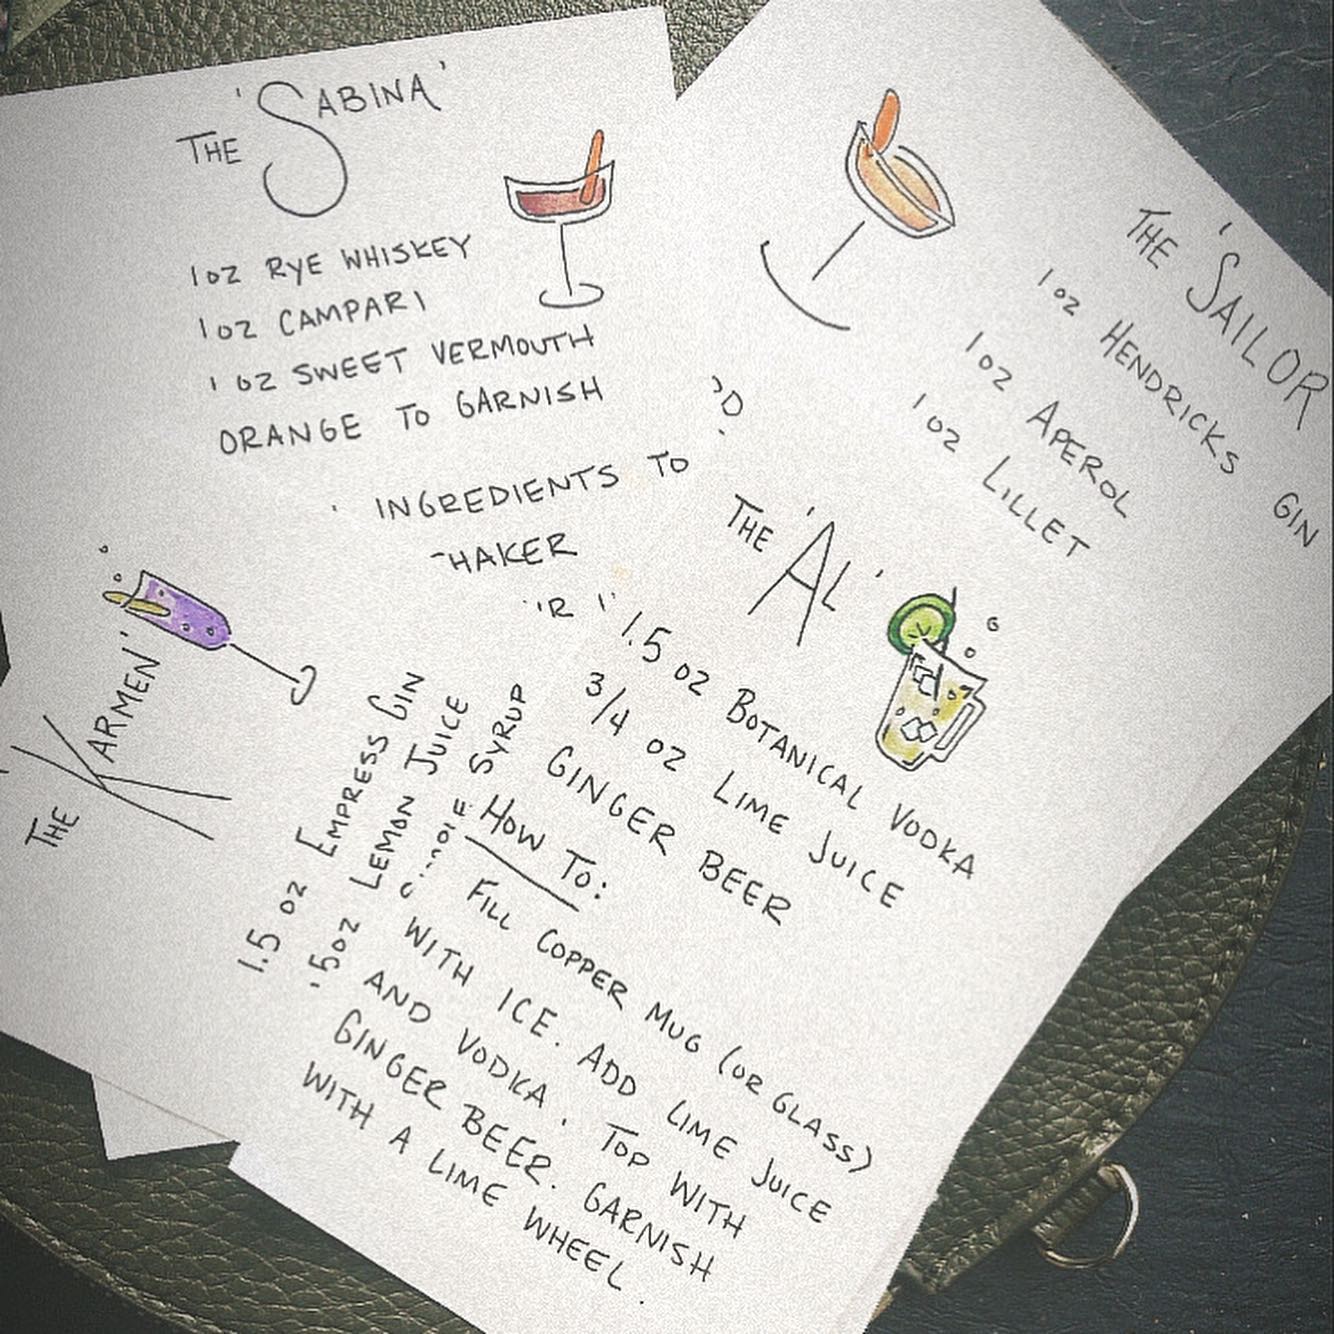 THE 'SABINA'
1 OZ RYE WHISKEY
1 OZ CAMPARI
1 OZ SWEET VERMOUTH
ORANGE TO GARNISH
INGREDIENTS TO
THE 'SAILOR
1 OZ HENDRICKS GIN
1 OZ APEROL
1 OZ LILLET
THE 'KARMEN'
1.5 OZ EMPRESS GIN
.5OZ LEMON JUICE
SYRUP
THE 'AL'
1.5 OZ BOTANICAL VODKA
3/4 OZ LIME JUICE
GINGER BEER
HOW TO:
FILL COPPER MUG (OR GLASS)
WITH ICE. ADD LIME JUICE
AND VODKA. TOP WITH
GINGER BEER. GARNISH
WITH A LIME WHEEL.